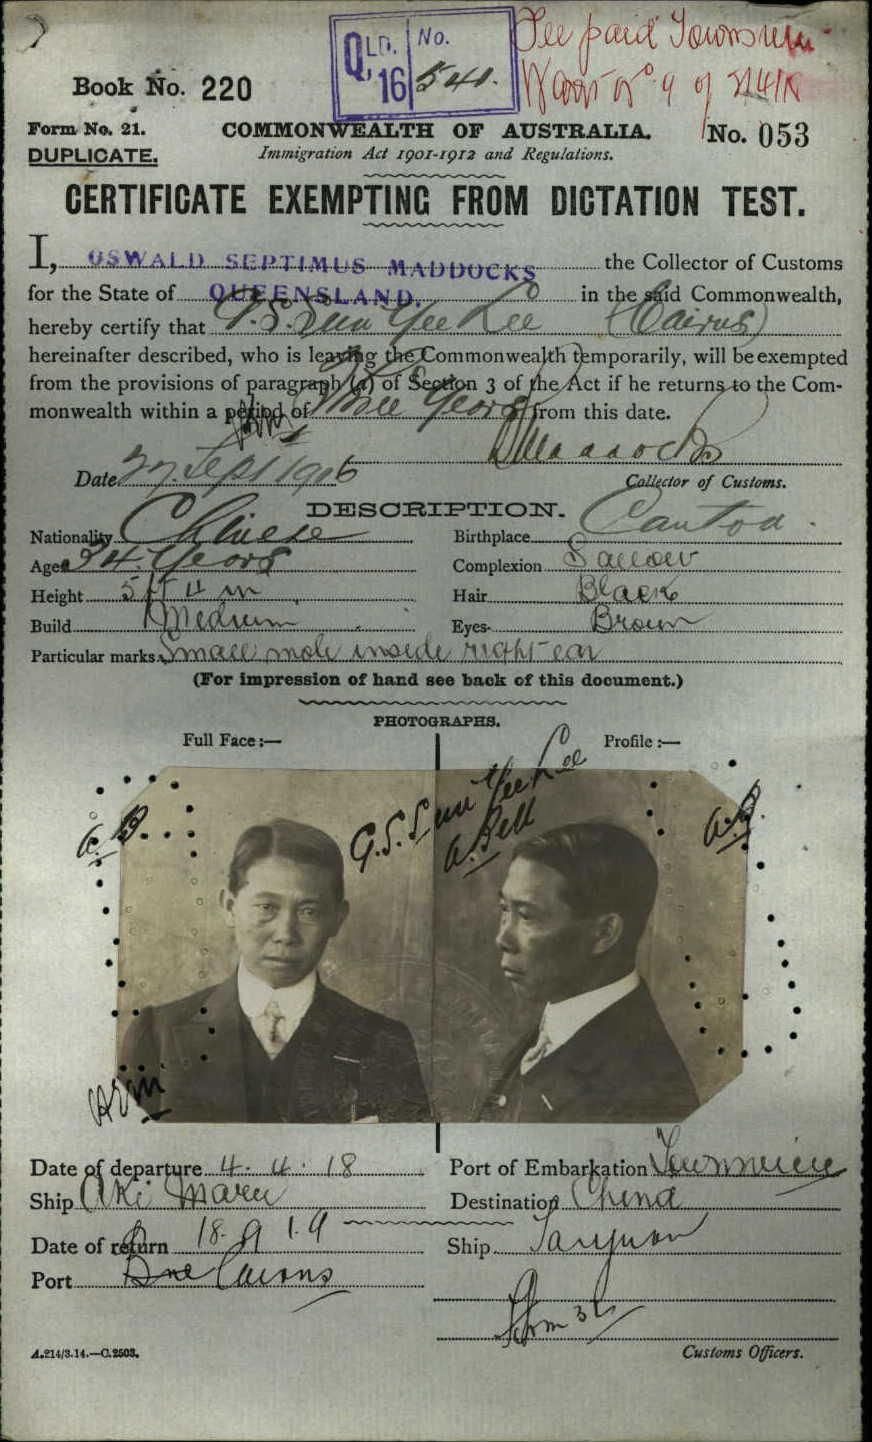 QLD. No.
16 541.
Fee paid Townsville
Book No. 220
Form No. 21. COMMONWEALTH OF AUSTRALIA. No. 053
DUPLICATE. Immigration Act 1901-1912 and Regulations.
CERTIFICATE EXEMPTING FROM DICTATION TEST.
I, OSWALD SEPTIMUS MADDOCKS the Collector of Customs
for the State of QUEENSLAND. in the said Commonwealth,
hereby certify that G. S. Sun Yee Lee (Cairns)
hereinafter described, who is leaving the Commonwealth temporarily, will be exempted
from the provisions of paragraph (a) of Section 3 of the Act if he returns to the Com-
monwealth within a period of Three Years from this date.
OMaddocks
Date 27. Sept 1916 Collector of Customs.
DESCRIPTION.
Nationality Chinese Birthplace Canton.
Age 34 Years Complexion Sallow
Height 5 ft 4 in Hair Black
Build Medium Eyes Brown
Particular marks Small mole inside right ear
(For impression of hand see back of this document.)
PHOTOGRAPHS.
Full Face:— Profile:—
G. S. Sun Yee Lee
A. Bell
A.B. A.B.
Date of departure 4. 4. 18 Port of Embarkation Townsville
Ship Aki Maru Destination China
Date of return 18. 9 19 Ship Taiyuan
Port Cairns
A.214/3.14.—C.2503. Customs Officers.